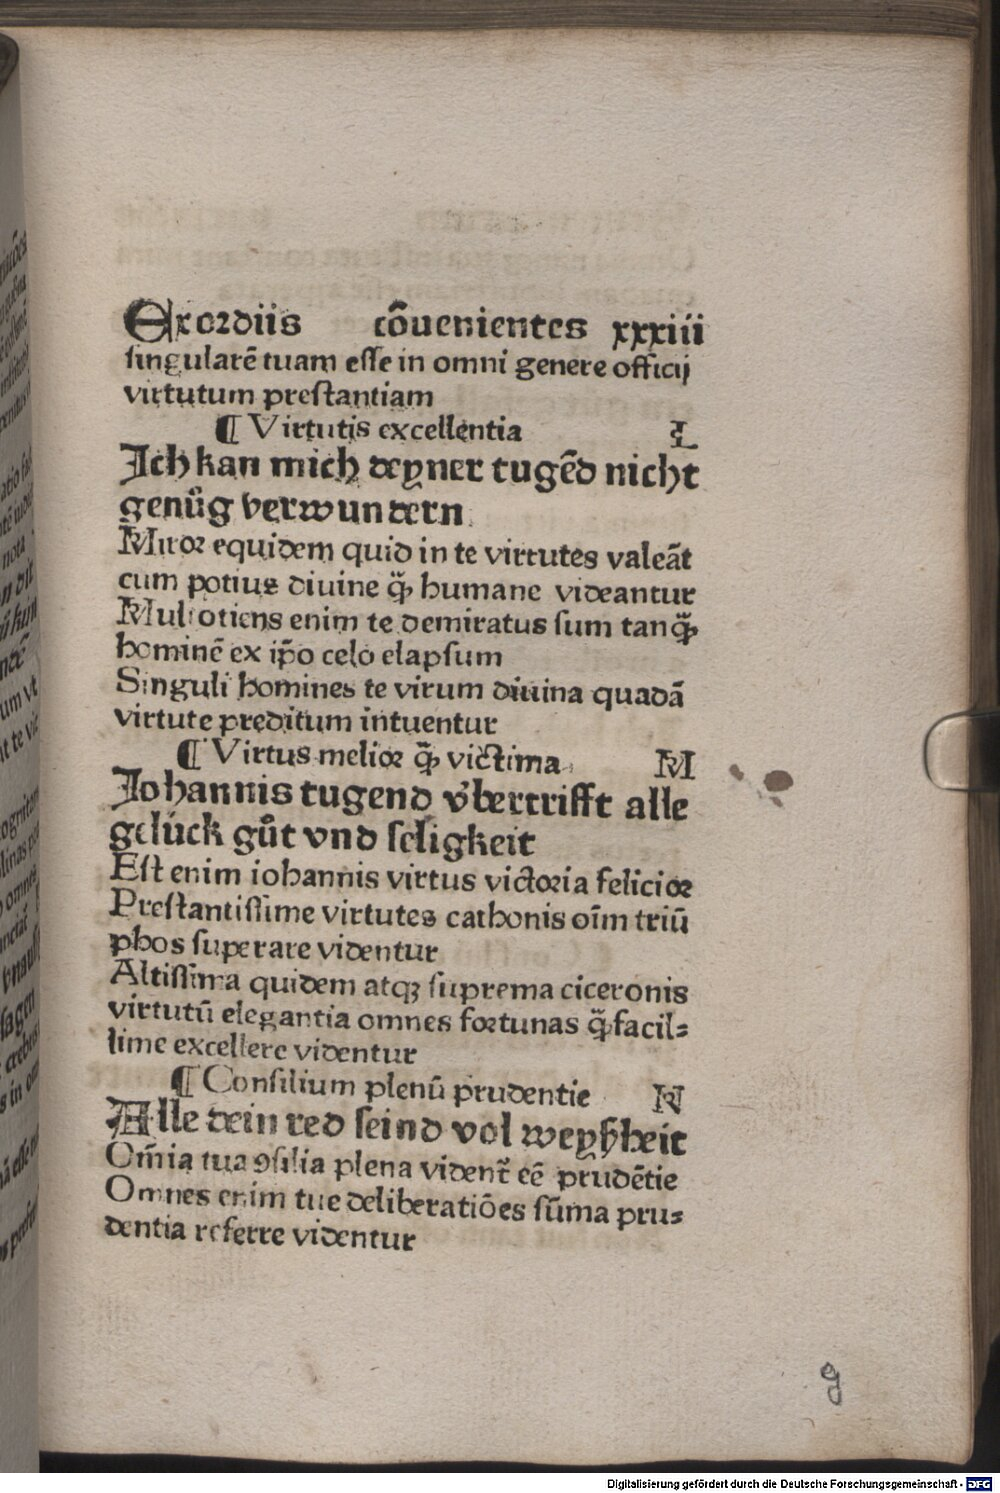 Exordiis cõuenientes xxxiii
singularē tuam esse in omni genere officij
virtutum prestantiam
¶ Virtutis excellentia L
Ich kan mich deyner tugēd nicht
genůg verwundern
Miror equidem quid in te virtutes valeāt
cum potius diuine q̃ꝫ humane videantur
Multotiens enim te demiratus sum tanq̃ꝫ
hominē ex ip̃o celo elapsum
Singuli homines te virum diuina quadā
virtute preditum intuentur
¶ Virtus melior q̃ꝫ victima M
Johannis tugend v̓bertrifft alle
gelúck gůt vnd seligkeit
Est enim iohannis virtus victoria felicior
Prestantissime virtutes cathonis oīm triū
phos superare videntur
Altissima quidem atqꝫ suprema ciceronis
virtutū elegantia omnes fortunas q̃ꝫ facil⸗
lime excellere videntur
¶ Consilium plenū prudentie N
Alle dein red seind vol weyßheit
Om̄ia tua ꝯsilia plena vident̃ eē prudētie
Omnes enim tue deliberatiões sūma pru⸗
dentia referre videntur
g
Digitalisierung gefördert durch die Deutsche Forschungsgemeinschaft - DFG